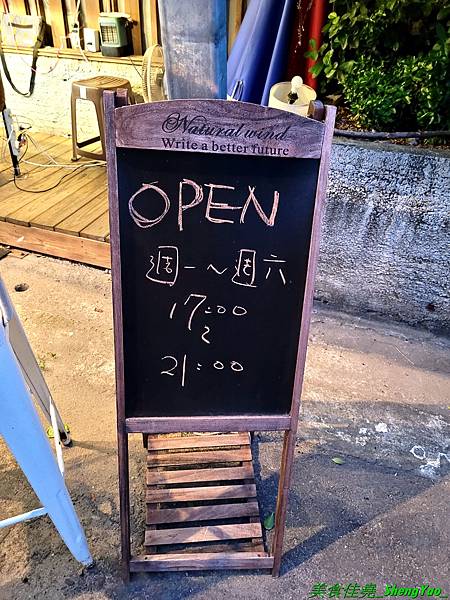 Natural wind
Write a better future
OPEN
週一～週六
17:00
~
21:00
美食佳堯_ShengYao_